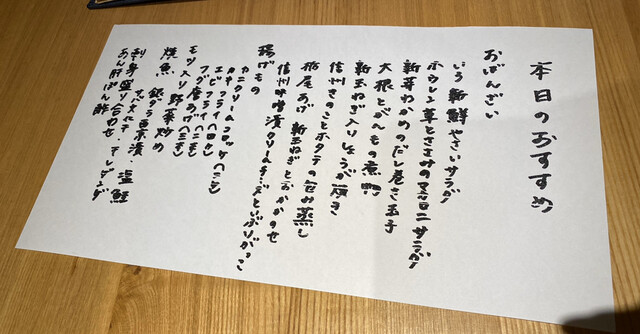 本日のおすすめ
おばんざい
いろ新鮮やさいサラダ
ホウレン草とささみのマカロニサラダ
新芽わかめのだし巻き玉子
大根とがんもの煮
新玉ねぎ入りしょうが焼き
信州きのことホタテの包み蒸し
栃尾あげ 新玉ねぎとおかかのせ
信州味噌漬クリームチーズといぶりがっこ
揚げもの
カニクリームコロッケ(ニコ)
カキフライ(ニコ)
エビフライ
フグ唐あげ
モツ入り野菜炒め
焼魚 銀ダラ西京漬・塩鮭
刺身盛り合わせ
あん肝ぽん酢